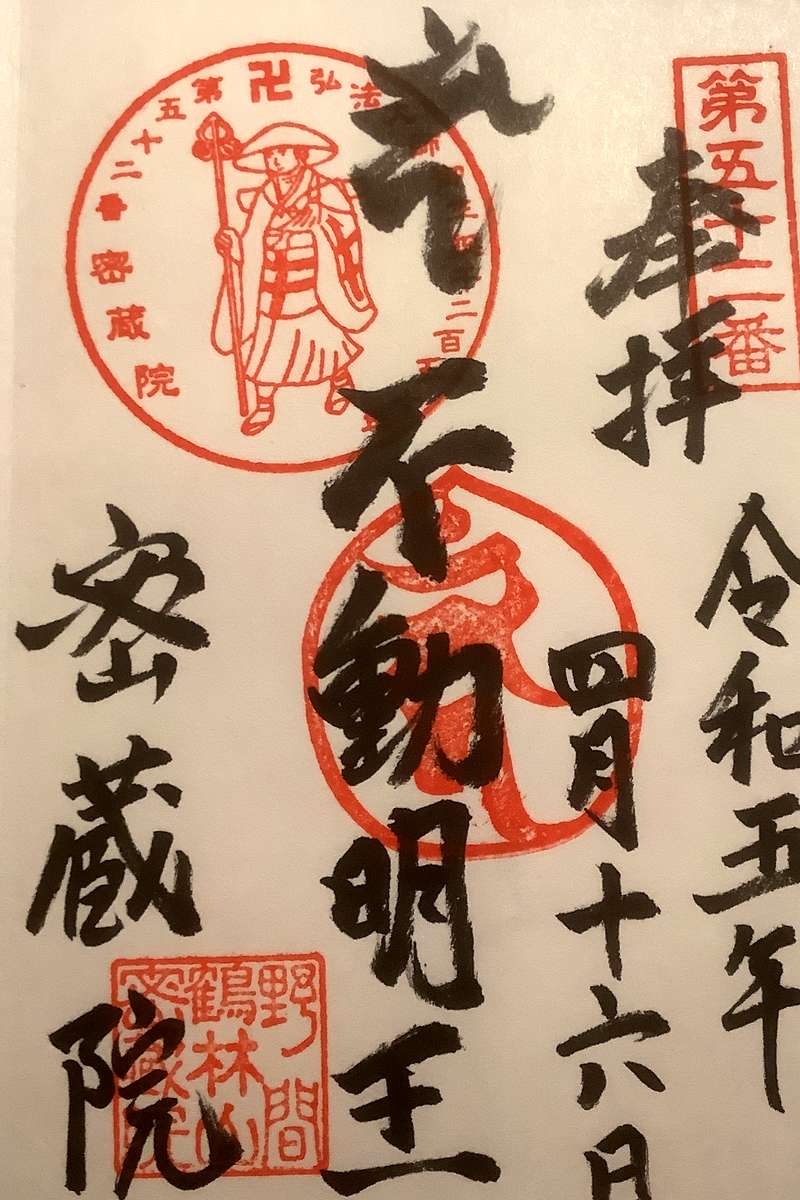 第五十二番
奉拝
令和五年
四月十六日
不動明王
卍
弘法
第五十二番
密蔵院
二百五
密蔵院
野間
鶴林山
密蔵院